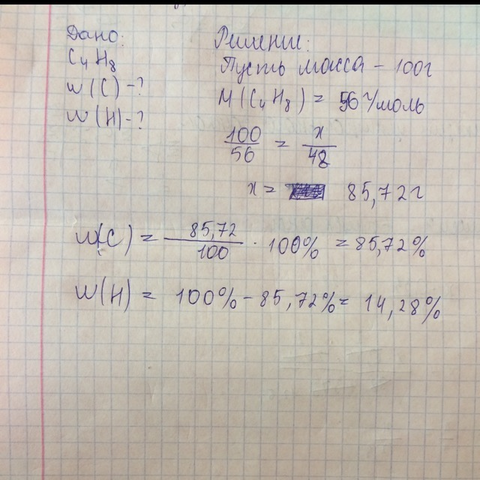 Дано:
C4H8
w(C)-?
w(H)-?
Решение:
Пусть масса - 100г
M(C4H8) = 56 г/моль
100/56 = x/48
x = 85,72г
w(C) = 85,72/100 · 100% = 85,72%
w(H) = 100% - 85,72% = 14,28%